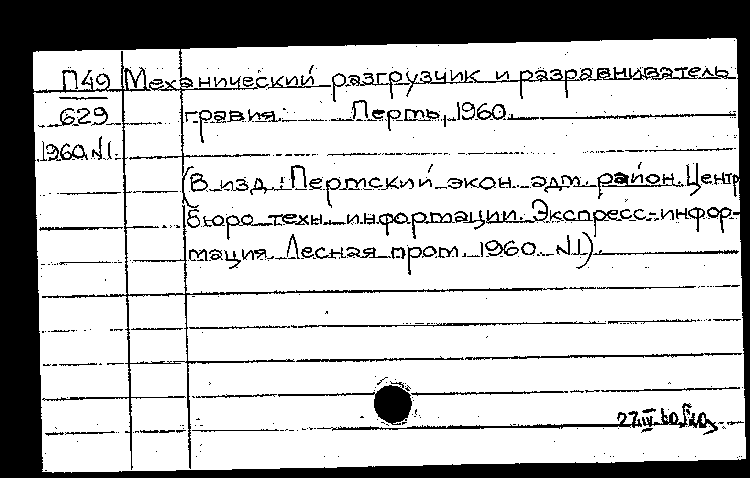 П49 Механический разгрузчик и разравниватель
629 гравия. Пермь, 1960.
1960.N1.
(В изд.: Пермский экон. адм. район. Центр
бюро техн. информации. Экспресс-инфор-
мация. Лесная пром. 1960. N1).
27.IV.60.